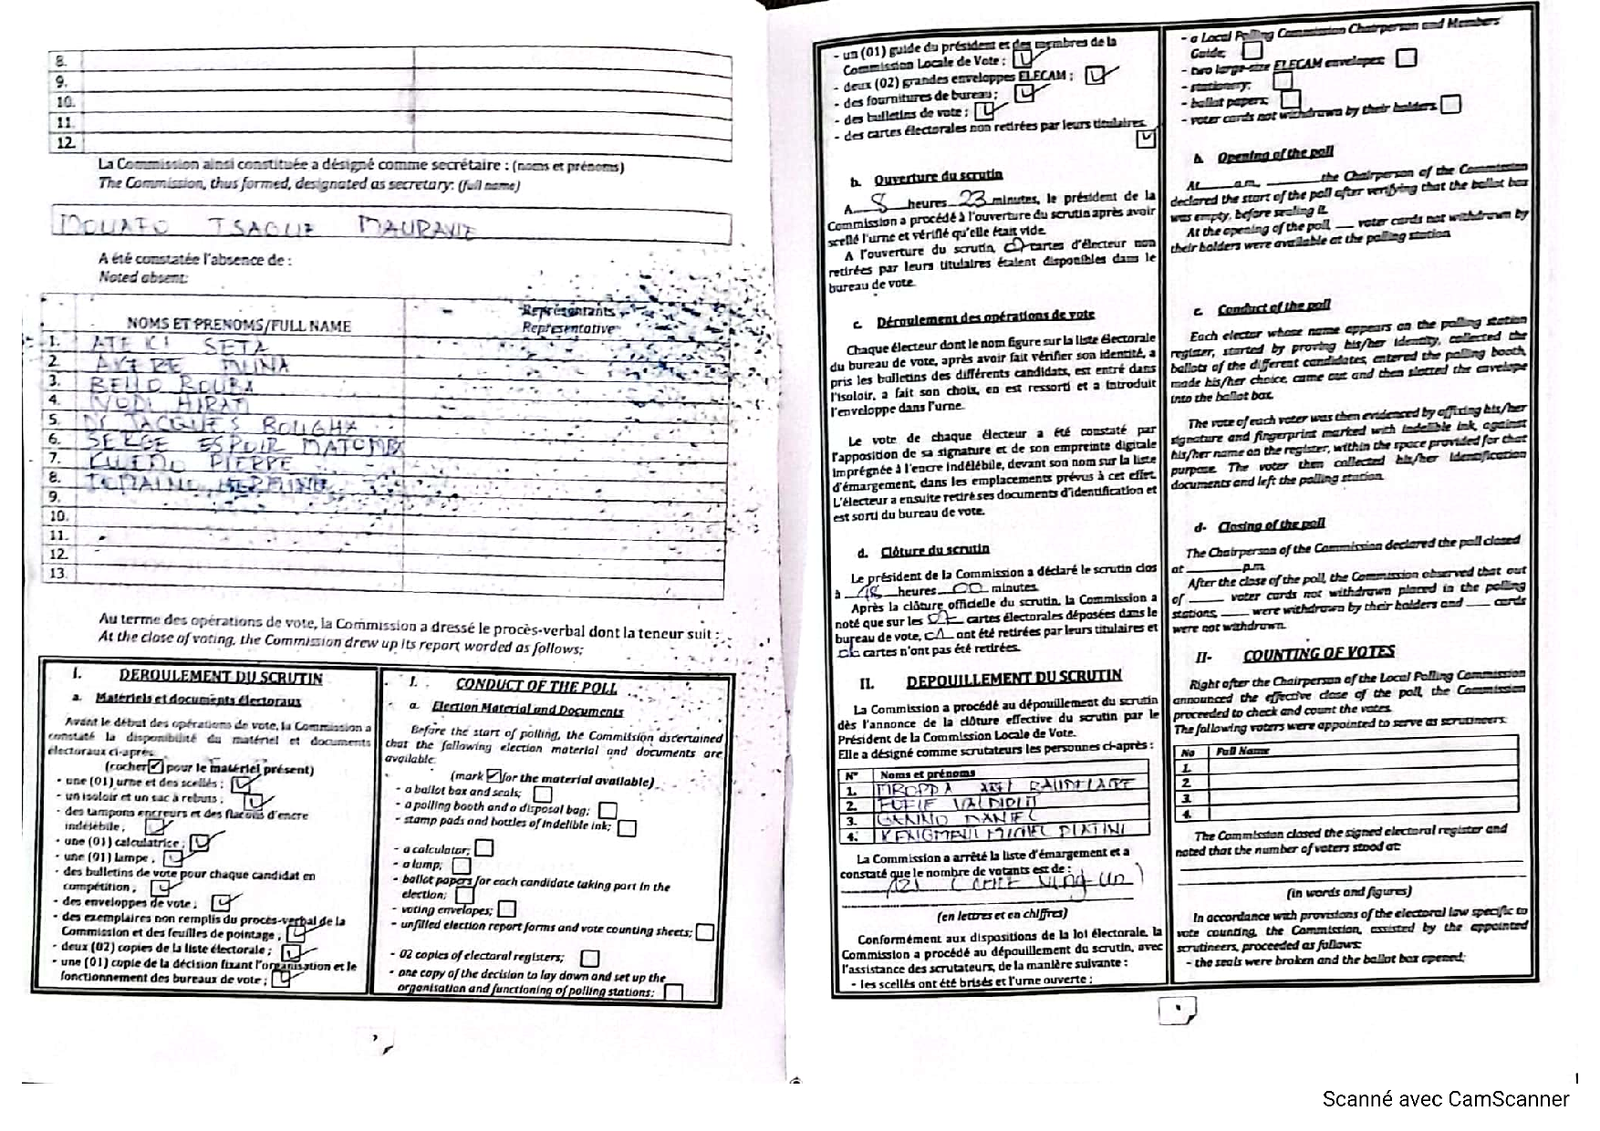 8.
9.
10.
11.
12.
La Commission ainsi constituée a désigné comme secrétaire : (noms et prénoms)
The Commission, thus formed, designated as secretary: (full name)
MAURAVIE
A été constatée l'absence de :
Noted absent:
NOMS ET PRENOMS/FULL NAME
Représentants
Representative
1. SETA
2. MUNA
3. BELLO BOUBA
4.
5. Dr JACQUES
6. SERGE ESPOIR MATOMBA
7. PIERRE
8.
9.
10.
11.
12.
13.
Au terme des opérations de vote, la Commission a dressé le procès-verbal dont la teneur suit :
At the close of voting, the Commission drew up its report worded as follows;
I. DEROULEMENT DU SCRUTIN
a. Matériels et documents électoraux
Avant le début des opérations de vote, la Commission a
constaté la disponibilité du matériel et documents
électoraux ci-après
(cocher ✓ pour le matériel présent)
- une (01) urne et des scellés ;
- un isoloir et un sac à rebuts ;
- des tampons encreurs et des flacons d'encre
indélébile ;
- une (01) calculatrice ;
- une (01) lampe .
- des bulletins de vote pour chaque candidat en
compétition ;
- des enveloppes de vote ;
- des exemplaires non remplis du procès-verbal de la
Commission et des feuilles de pointage ;
- deux (02) copies de la liste électorale ;
- une (01) copie de la décision fixant l'organisation et le
fonctionnement des bureaux de vote ;
I. CONDUCT OF THE POLL
a. Election Material and Documents
Before the start of polling, the Commission ascertained
that the following election material and documents are
available.
(mark ✓ for the material available)
- a ballot box and seals;
- a polling booth and a disposal bag;
- stamp pads and bottles of indelible ink;
- a calculator;
- a lamp;
- ballot papers for each candidate taking part in the
election;
- voting envelopes;
- unfilled election report forms and vote counting sheets;
- 02 copies of electoral registers;
- one copy of the decision to lay down and set up the
organisation and functioning of polling stations;
- un (01) guide du président et des membres de la
Commission Locale de Vote ;
- deux (02) grandes enveloppes ELECAM ;
- des fournitures de bureau ;
- des bulletins de vote ;
- des cartes électorales non retirées par leurs titulaires.
b. Ouverture du scrutin
A 8 heures 23 minutes, le président de la
Commission a procédé à l'ouverture du scrutin après avoir
scellé l'urne et vérifié qu'elle était vide.
A l'ouverture du scrutin, cartes d'électeur non
retirées par leurs titulaires étaient disponibles dans le
bureau de vote.
c. Déroulement des opérations de vote
Chaque électeur dont le nom figure sur la liste électorale
du bureau de vote, après avoir fait vérifier son identité, a
pris les bulletins des différents candidats, est entré dans
l'isoloir, a fait son choix, en est ressorti et a introduit
l'enveloppe dans l'urne.
Le vote de chaque électeur a été constaté par
l'apposition de sa signature et de son empreinte digitale
imprégnée à l'encre indélébile, devant son nom sur la liste
d'émargement, dans les emplacements prévus à cet effet.
L'électeur a ensuite retiré ses documents d'identification et
est sorti du bureau de vote.
d. Clôture du scrutin
Le président de la Commission a déclaré le scrutin clos
à 18 heures 00 minutes.
Après la clôture officielle du scrutin, la Commission a
noté que sur les cartes électorales déposées dans le
bureau de vote, ont été retirées par leurs titulaires et
cartes n'ont pas été retirées.
II. DEPOUILLEMENT DU SCRUTIN
La Commission a procédé au dépouillement du scrutin
dès l'annonce de la clôture effective du scrutin par le
Président de la Commission Locale de Vote.
Elle a désigné comme scrutateurs les personnes ci-après :
N° Noms et prénoms
1.
2.
3. DANIEL
4. MICHEL PLATINI
La Commission a arrêté la liste d'émargement et a
constaté que le nombre de votants est de :
121 (cent vingt un)
(en lettres et en chiffres)
Conformément aux dispositions de la loi électorale, la
Commission a procédé au dépouillement du scrutin, avec
l'assistance des scrutateurs, de la manière suivante :
- les scellés ont été brisés et l'urne ouverte ;
- a Local Polling Commission Chairperson and Members
Guide;
- two large-size ELECAM envelopes;
- stationery;
- ballot papers;
- voter cards not withdrawn by their holders.
b. Opening of the poll
At a.m, the Chairperson of the Commission
declared the start of the poll after verifying that the ballot box
was empty, before sealing it.
At the opening of the poll, voter cards not withdrawn by
their holders were available at the polling station.
c. Conduct of the poll
Each elector whose name appears on the polling station
register, started by proving his/her identity, collected the
ballots of the different candidates, entered the polling booth,
made his/her choice, came out and then slotted the envelope
into the ballot box.
The vote of each voter was then evidenced by affixing his/her
signature and fingerprint marked with indelible ink, against
his/her name on the register, within the space provided for that
purpose. The voter then collected his/her identification
documents and left the polling station.
d- Closing of the poll
The Chairperson of the Commission declared the poll closed
at p.m
After the close of the poll, the Commission observed that out
of voter cards not withdrawn placed in the polling
stations, were withdrawn by their holders and cards
were not withdrawn.
II- COUNTING OF VOTES
Right after the Chairperson of the Local Polling Commission
announced the effective close of the poll, the Commission
proceeded to check and count the votes.
The following voters were appointed to serve as scrutineers:
No Full Name
1.
2.
3.
4.
The Commission closed the signed electoral register and
noted that the number of voters stood at:
(in words and figures)
In accordance with provisions of the electoral law specific to
vote counting, the Commission, assisted by the appointed
scrutineers, proceeded as follows:
- the seals were broken and the ballot box opened;
Scanné avec CamScanner